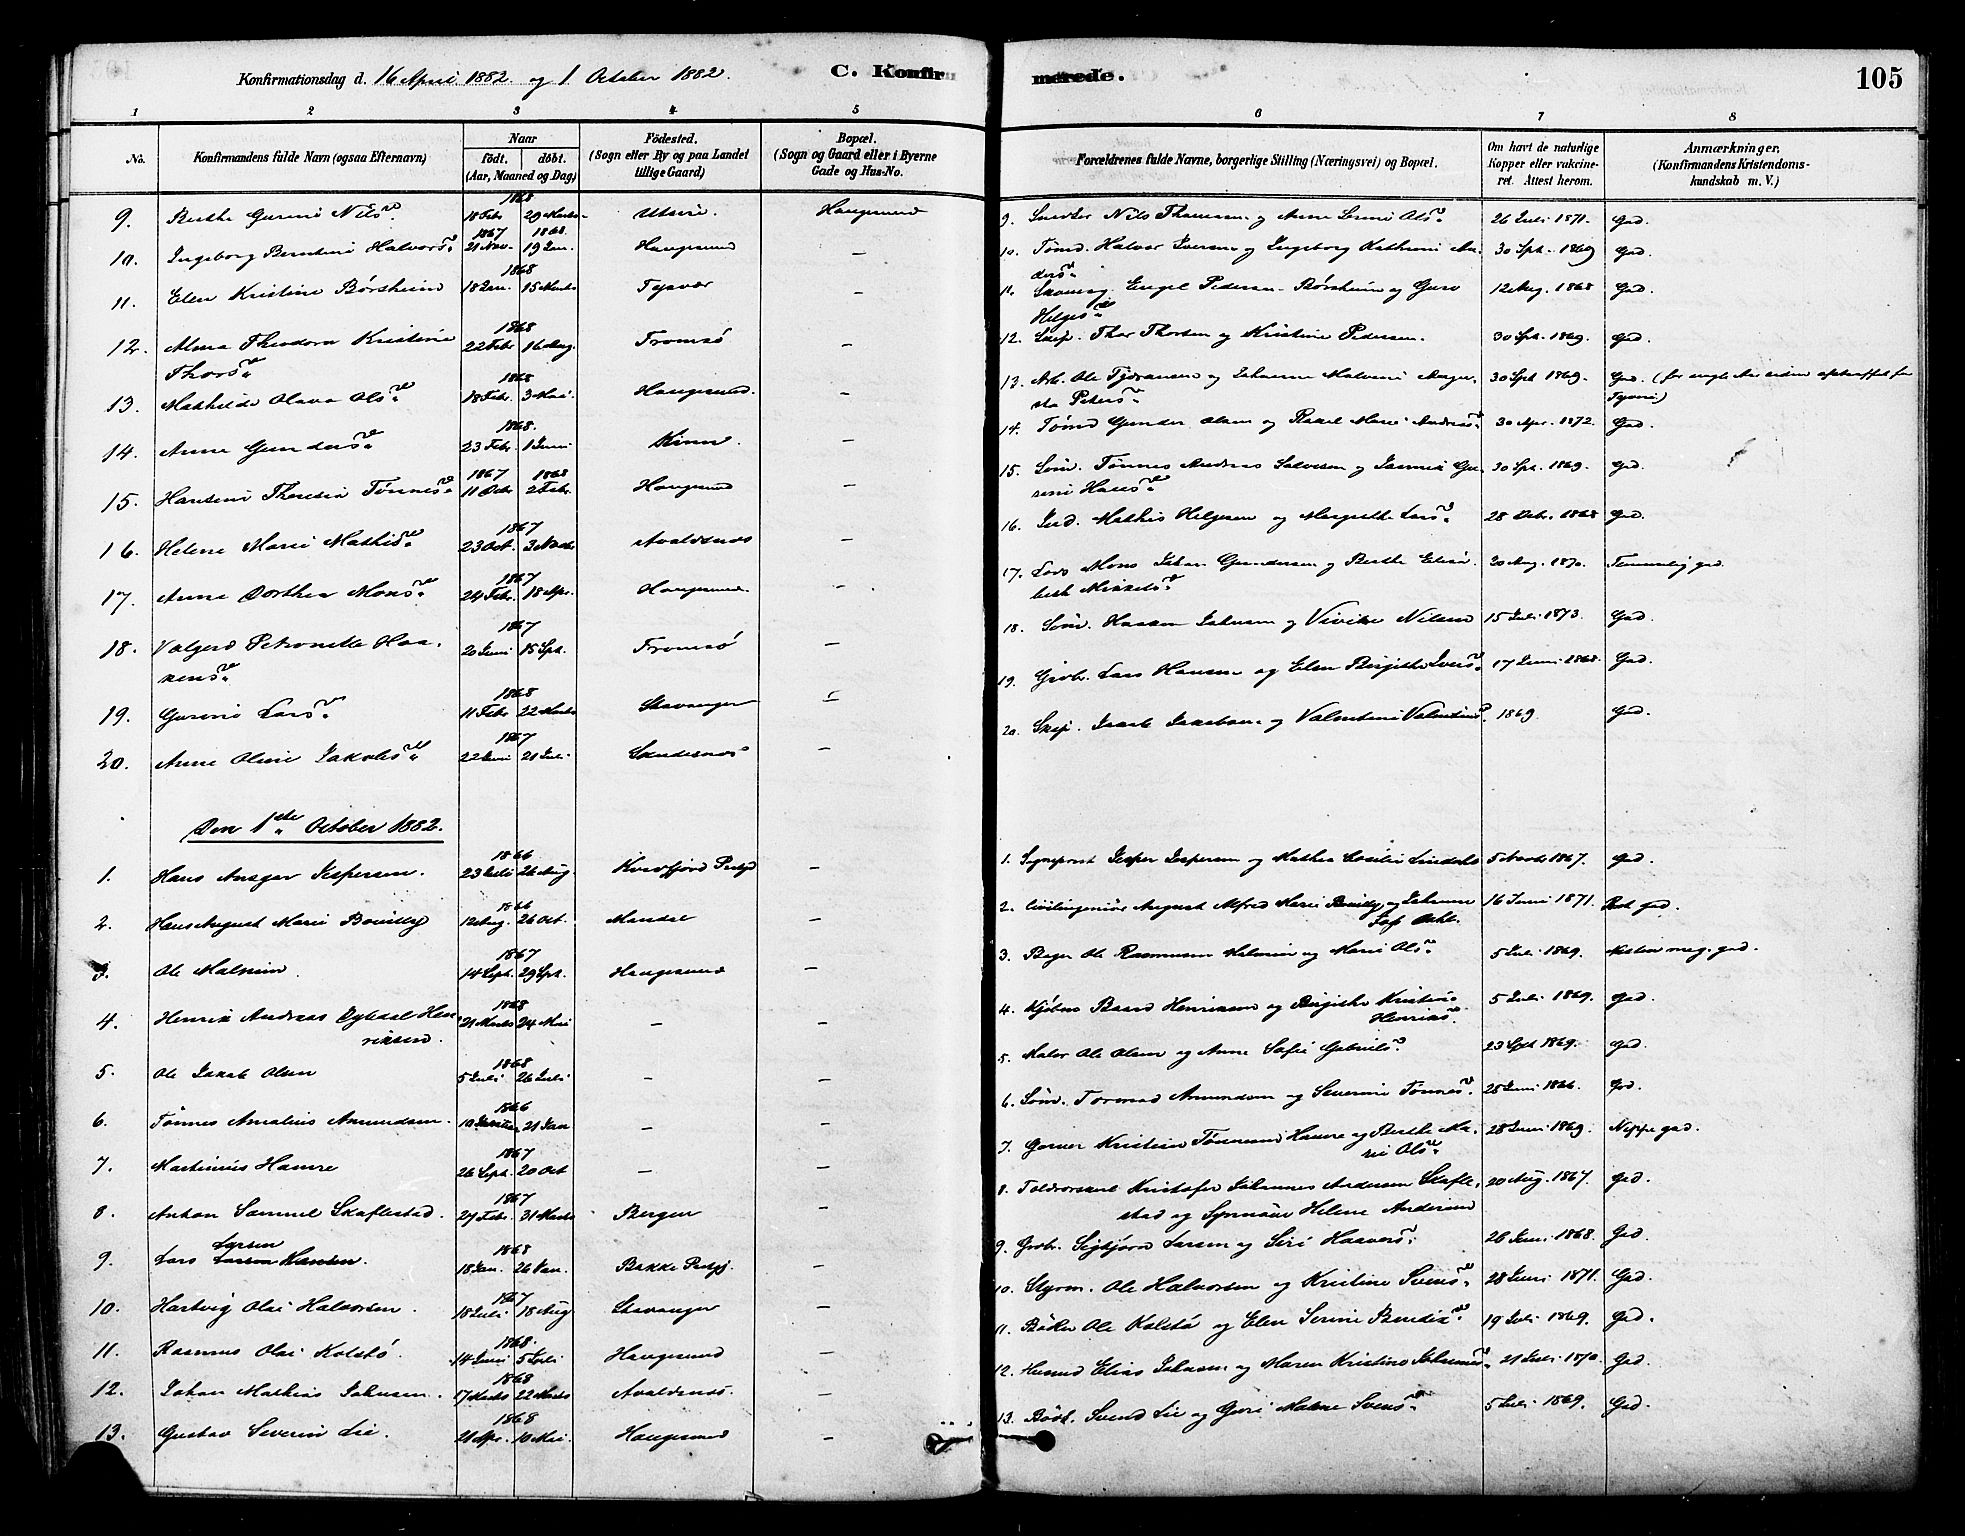 Konfirmationsdag d. 16 April 1882 og 1 October 1882.
C. Konfirmerede.
105
1 2 3 4 5 6 7 8
No.
Konfirmandens fulde Navn (ogsaa Efternavn)
Naar
født. døbt.
(Aar, Maaned og Dag)
Fødested.
(Sogn eller By og paa Landet
tillige Gaard)
Bopæl.
(Sogn og Gaard eller i Byerne
Gade og Hus-No.
Forældrenes fulde Navne, borgerlige Stilling (Næringsvei) og Bopæl.
Om havt de naturlige
Kopper eller vakcine-
ret. Attest herom.
Anmærkninger,
(Konfirmandens Kristendoms-
kundskab m. V.)
1868
9. Berthe Gurine Nilsd. 18 Febr 29 Marts Utsire. Haugesund 9. Snedker Nils Thomsen og Anne Serine Olsd. 26 Juli 1871. God.
1867 1868
10. Ingeborg Berntine Halvorsd. 21 Nov. 19 Jan. Haugesund — 10. Tømd. Halvor Iversen og Ingeborg Kathrine Andersd. 30 Spt. 1869 God.
1868
11. Elen Kristine Børsheim 18 Jan. 15 Marts Tysvær — 11. Engel Pedersen Børsheim og Guro Helgesd. 12 Aug. 1868 God.
1868
12. Alma Theodora Kristine Thorsd. 22 Febr 16 Aug. Tromsø — 12. Skip. Thor Thorsen og Kristine Pedersen. 30 Spt. 1869. God.
1868
13. Mathilde Olava Olsd. 18 Febr. 3 Mai Haugesund. — 13. Arb. Ole Tjøransen og Johanne Malvine Augusta Petersd. 30 Spt 1869. God.
1868
14. Anne Gundersd. 23 Febr 1 Juni Kinn. — 14. Tømd Gunder Olsen og Rakel Marie Andreasd. 30 Apr. 1872. God.
1867 1868
15. Hansine Theresia Tønnesd. 11 Octr 2 Febr. Haugesund — 15. Søm. Tønnes Andreas Salvesen og Gurine Hansd. 30 Spt. 1869. God.
1867
16. Helene Marie Mathisd. 23 Oct. 3 Novbr. Avaldsnes — 16. Mathis Helgesen og Margrethe Larsd. 28 Octr. 1868 God.
1867
17. Anne Dorthea Monsd. 24 Febr. 18 Apr. Haugesund. — 17. Lods Mons Johan Gundersen og Berthe Elisabeth Mikkelsd. 20 Aug. 1870. Temmelig god.
1867
18. Valgerd Petronelle Haakensd. 20 Juni 15 Spt. Tromsø — 18. Søm. Haaken Johnsen og Vivike Nilsen 15 Juli 1873. God.
1868
19. Gurine Larsd. 11 Febr 22 Marts Stavanger — 19. Grovbr. Lars Hansen og Elen Birgithe Iversd. 17 Juni 1868. God.
1867
20. Anne Oline Jakobsd. 22 Juni 21 Juli Skudesnes — 20. Skip. Jacob Jacobsen og Valentine Valentinsd. 1869 God.
Den 1ste October 1882.
1866
1. Hans Ansgar Jespersen. 23 Juli 26 Aug. Kvæfjord Prstgj — 1. Sogneprest Jesper Jespersen og Mathea Cecilie 5 Novbr 1867. God.
1866
2. Hans August Marie 12 Aug. 26 Oct. Mandal — 2. Civilingeniør August Alfred Marie og Johanne 16 Juni 1871. god.
1867
3. Ole Malmin. 14 Sept. 29 Spt. Haugesund — 3. Bager Ole Rasmussen Malmin og Marie Olsd. 5 Juli 1869. Næsten meg. god.
1868
4. Henrik Andreas Dybdal Henriksen. 21 Marts 24 Mai — — 4. Kjøbm Baard Henriksen og Birgithe Kristine Henriksd. 5 Juli 1869. God.
1868
5. Ole Jakob Olsen 5 Juli 26 Juli — — 5. Maler Ole Olsen og Anne Sofie Gabrielsd. 23 Spt 1869. God.
1866
6. Tønnes Amalius Amundsen. 21 Jan — — 6. Søm. Tormod Amundsen og Severine Tønnesd. 25 Juni 1866. God.
1867
7. Martinius Hamre 26 Sept. 20 Oct — — 7. Garver Kristian Tønnesen Hamre og Berthe Marie Olsd. 28 Juni 1869. Neppe god.
1867
8. Anton Samuel Skaflestad. 27 Febr. 31 Marts Bergen — 8. Toldvorskrl Kristofer Johannes Andersen Skaflestad og Synnøve Helene Andersen 20 Aug. 1867. God.
1868
9. Lars Larsen 18 Jan. 26 Jan. Bakke Prstgj. — 9. Grovbr. Sigbjørn Larsen og Siri Haaversd. 26 Juni 1868. God.
1867
10. Hartvig Olai Halvorsen. 18 Juli 18 Aug Stavanger — 10. Styrm. Ole Halvorsen og Kristine Svensd. 28 Juni 1871. God.
1868
11. Rasmus Olai Kolstø. 14 Juni 5 Juli Haugesund — 11. Bødker Ole Kolstø og Elen Serine Bendixd. 19 Juli 1869. God.
1868
12. Johan Mathias Johnsen. 17 Marts 22 Marts Avaldsnes. — 12. Husmd Elias Johnsen og Maren Kristine Johannesd. 21 Juli 1870. God.
1868
13. Gustav Severin Lie 21 Apr. 10 Mai. Haugesund — 13. Bødk. Svend Lie og Guri Malene Svensd. 5 Juli 1869. God.